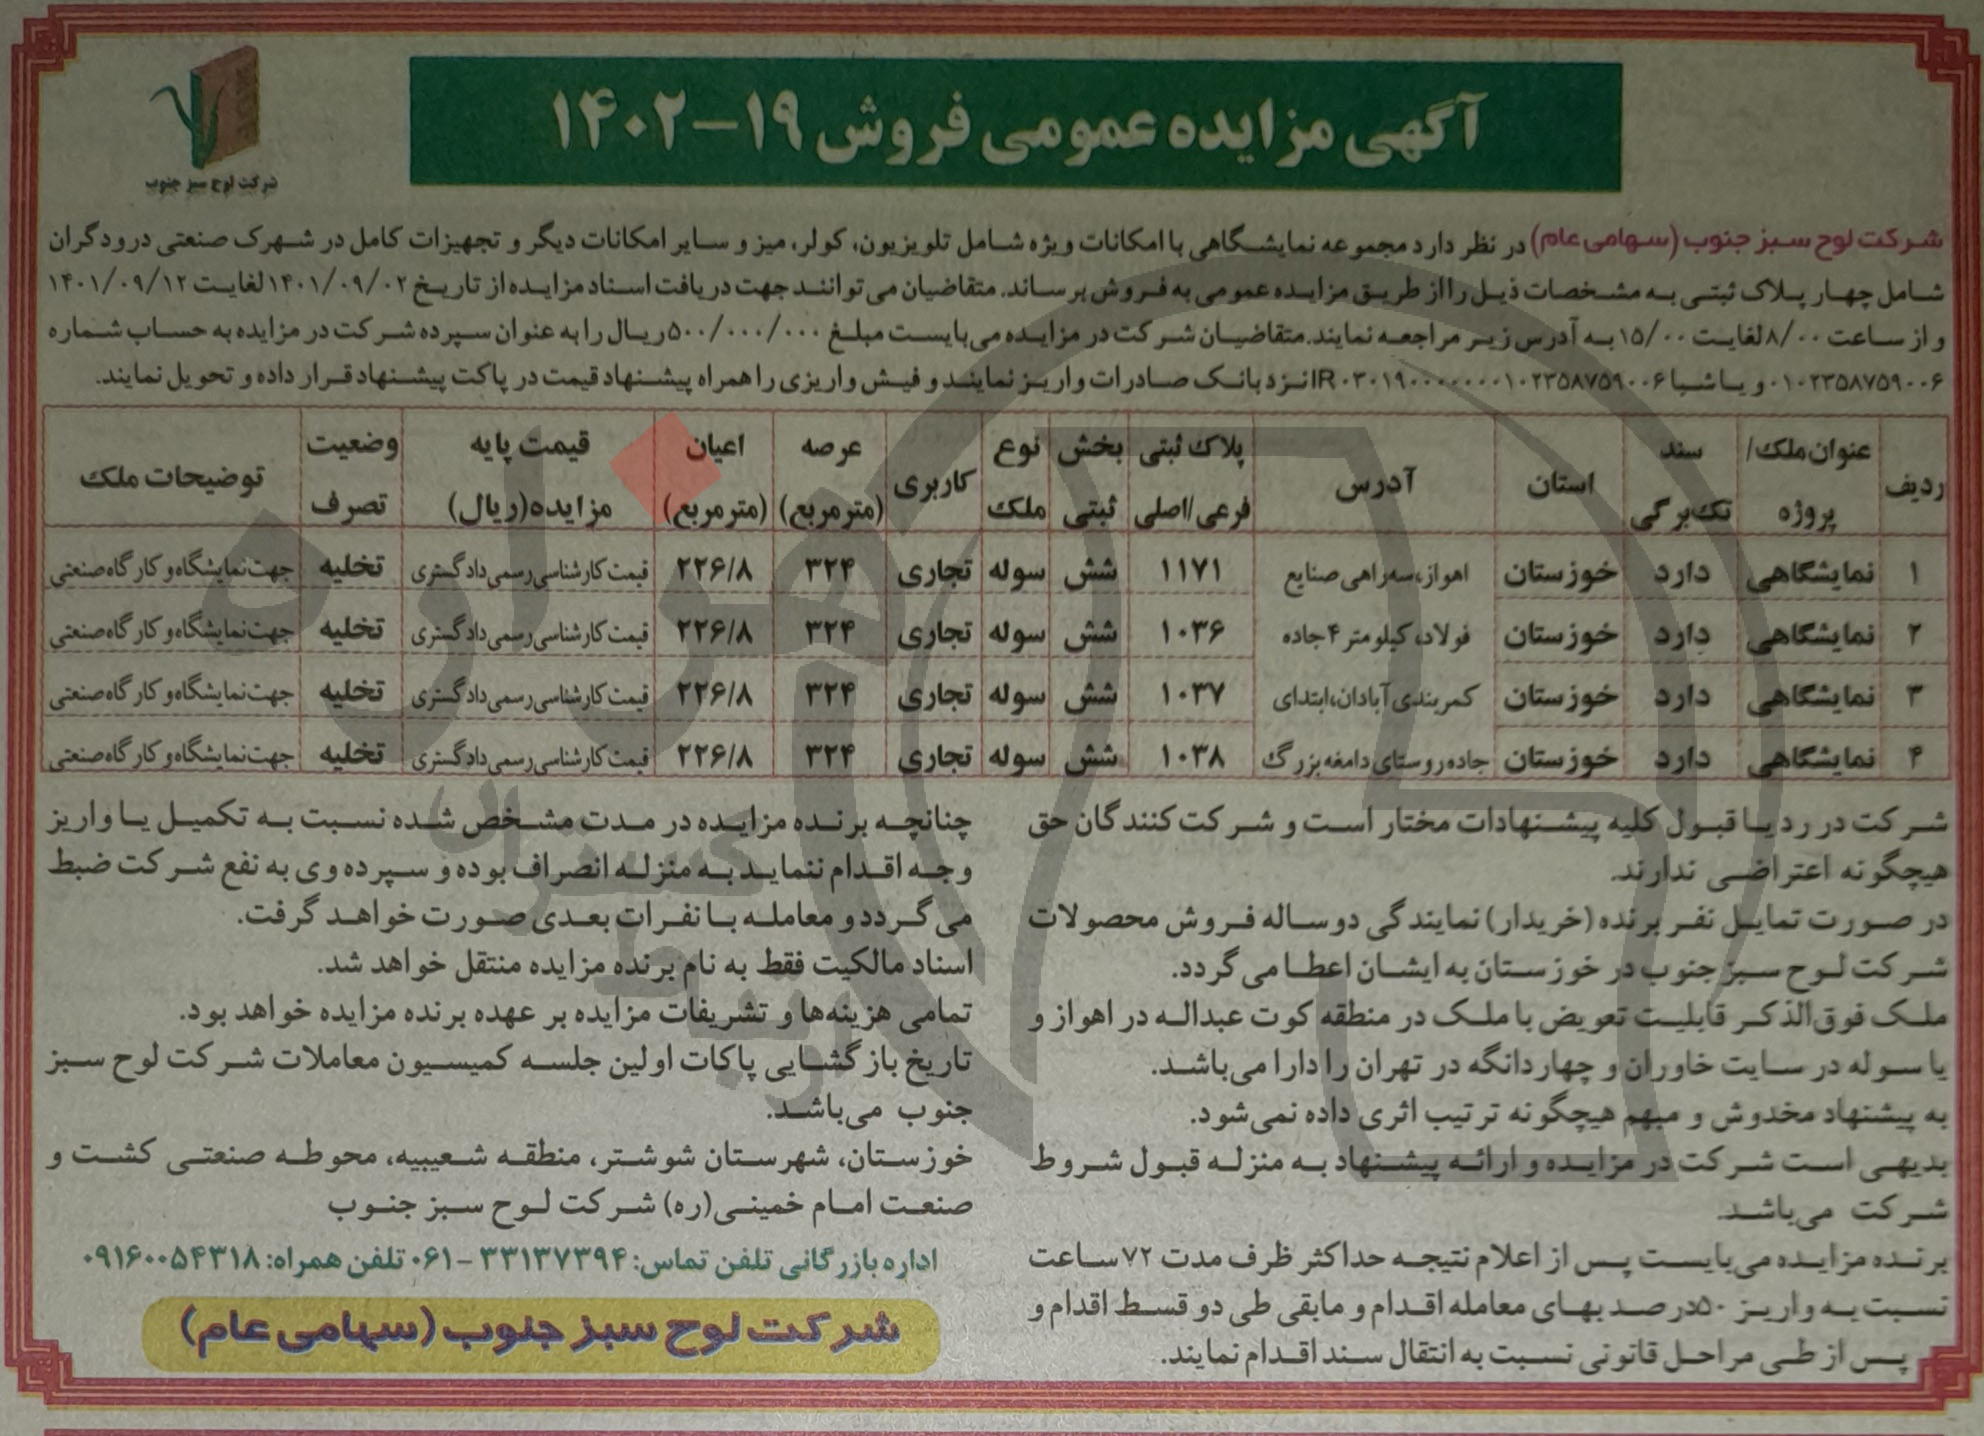 آگهی مزایده عمومی فروش ۱۹-۱۴۰۲
شرکت لوح سبز جنوب
شرکت لوح سبز جنوب (سهامی عام) در نظر دارد مجموعه نمایشگاهی با امکانات ویژه شامل تلویزیون، کولر، میز و سایر امکانات دیگر و تجهیزات کامل در شهرک صنعتی درودگران
شامل چهار پلاک ثبتی به مشخصات ذیل را از طریق مزایده عمومی به فروش برساند. متقاضیان می توانند جهت دریافت اسناد مزایده از تاریخ ۱۴۰۱/۰۹/۰۲ لغایت ۱۴۰۱/۰۹/۱۲
و از ساعت ۸/۰۰ لغایت ۱۵/۰۰ به آدرس زیر مراجعه نمایند. متقاضیان شرکت در مزایده می بایست مبلغ ۵۰۰/۰۰۰/۰۰۰ ریال را به عنوان سپرده شرکت در مزایده به حساب شماره
۰۱۰۲۳۵۸۷۵۹۰۰۶ و یا شبا IR۰۳۰۱۹۰۰۰۰۰۰۰۰۱۰۲۳۵۸۷۵۹۰۰۶ نزد بانک صادرات واریز نمایند و فیش واریزی را همراه پیشنهاد قیمت در پاکت پیشنهاد قرار داده و تحویل نمایند.
ردیف عنوان ملک/ پروژه سند تک برگی استان آدرس پلاک ثبتی فرعی/اصلی بخش ثبتی نوع ملک کاربری عرصه (مترمربع) اعیان (مترمربع) قیمت پایه مزایده (ریال) وضعیت تصرف توضیحات ملک
۱ نمایشگاهی دارد خوزستان اهواز، سه راهی صنایع ۱۱۷۱ شش سوله تجاری ۳۲۴ ۲۲۶/۸ قیمت کارشناسی رسمی دادگستری تخلیه جهت نمایشگاه و کارگاه صنعتی
۲ نمایشگاهی دارد خوزستان فولاد، کیلومتر ۴ جاده ۱۰۳۶ شش سوله تجاری ۳۲۴ ۲۲۶/۸ قیمت کارشناسی رسمی دادگستری تخلیه جهت نمایشگاه و کارگاه صنعتی
۳ نمایشگاهی دارد خوزستان کمربندی آبادان، ابتدای ۱۰۳۷ شش سوله تجاری ۳۲۴ ۲۲۶/۸ قیمت کارشناسی رسمی دادگستری تخلیه جهت نمایشگاه و کارگاه صنعتی
۴ نمایشگاهی دارد خوزستان جاده روستای دامغه بزرگ ۱۰۳۸ شش سوله تجاری ۳۲۴ ۲۲۶/۸ قیمت کارشناسی رسمی دادگستری تخلیه جهت نمایشگاه و کارگاه صنعتی
شرکت در رد یا قبول کلیه پیشنهادات مختار است و شرکت کنندگان حق
هیچگونه اعتراضی ندارند.
در صورت تمایل نفر برنده (خریدار) نمایندگی دو ساله فروش محصولات
شرکت لوح سبز جنوب در خوزستان به ایشان اعطا می گردد.
ملک فوق الذکر قابلیت تعویض با ملک در منطقه کوت عبداله در اهواز و
یا سوله در سایت خاوران و چهاردانگه در تهران را دارا می باشد.
به پیشنهاد مخدوش و مبهم هیچگونه ترتیب اثری داده نمی شود.
بدیهی است شرکت در مزایده و ارائه پیشنهاد به منزله قبول شروط
شرکت می باشد.
برنده مزایده می بایست پس از اعلام نتیجه حداکثر ظرف مدت ۷۲ ساعت
نسبت به واریز ۵۰ درصد بهای معامله اقدام و مابقی طی دو قسط اقدام و
پس از طی مراحل قانونی نسبت به انتقال سند اقدام نمایند.
چنانچه برنده مزایده در مدت مشخص شده نسبت به تکمیل یا واریز
وجه اقدام ننماید به منزله انصراف بوده و سپرده وی به نفع شرکت ضبط
می گردد و معامله با نفرات بعدی صورت خواهد گرفت.
اسناد مالکیت فقط به نام برنده مزایده منتقل خواهد شد.
تمامی هزینه ها و تشریفات مزایده بر عهده برنده مزایده خواهد بود.
تاریخ بازگشایی پاکات اولین جلسه کمیسیون معاملات شرکت لوح سبز
جنوب می باشد.
خوزستان، شهرستان شوشتر، منطقه شعیبیه، محوطه صنعتی کشت و
صنعت امام خمینی (ره) شرکت لوح سبز جنوب
اداره بازرگانی تلفن تماس: ۳۳۱۳۷۳۹۴ -۰۶۱ تلفن همراه: ۰۹۱۶۰۰۵۴۳۱۸
شرکت لوح سبز جنوب (سهامی عام)